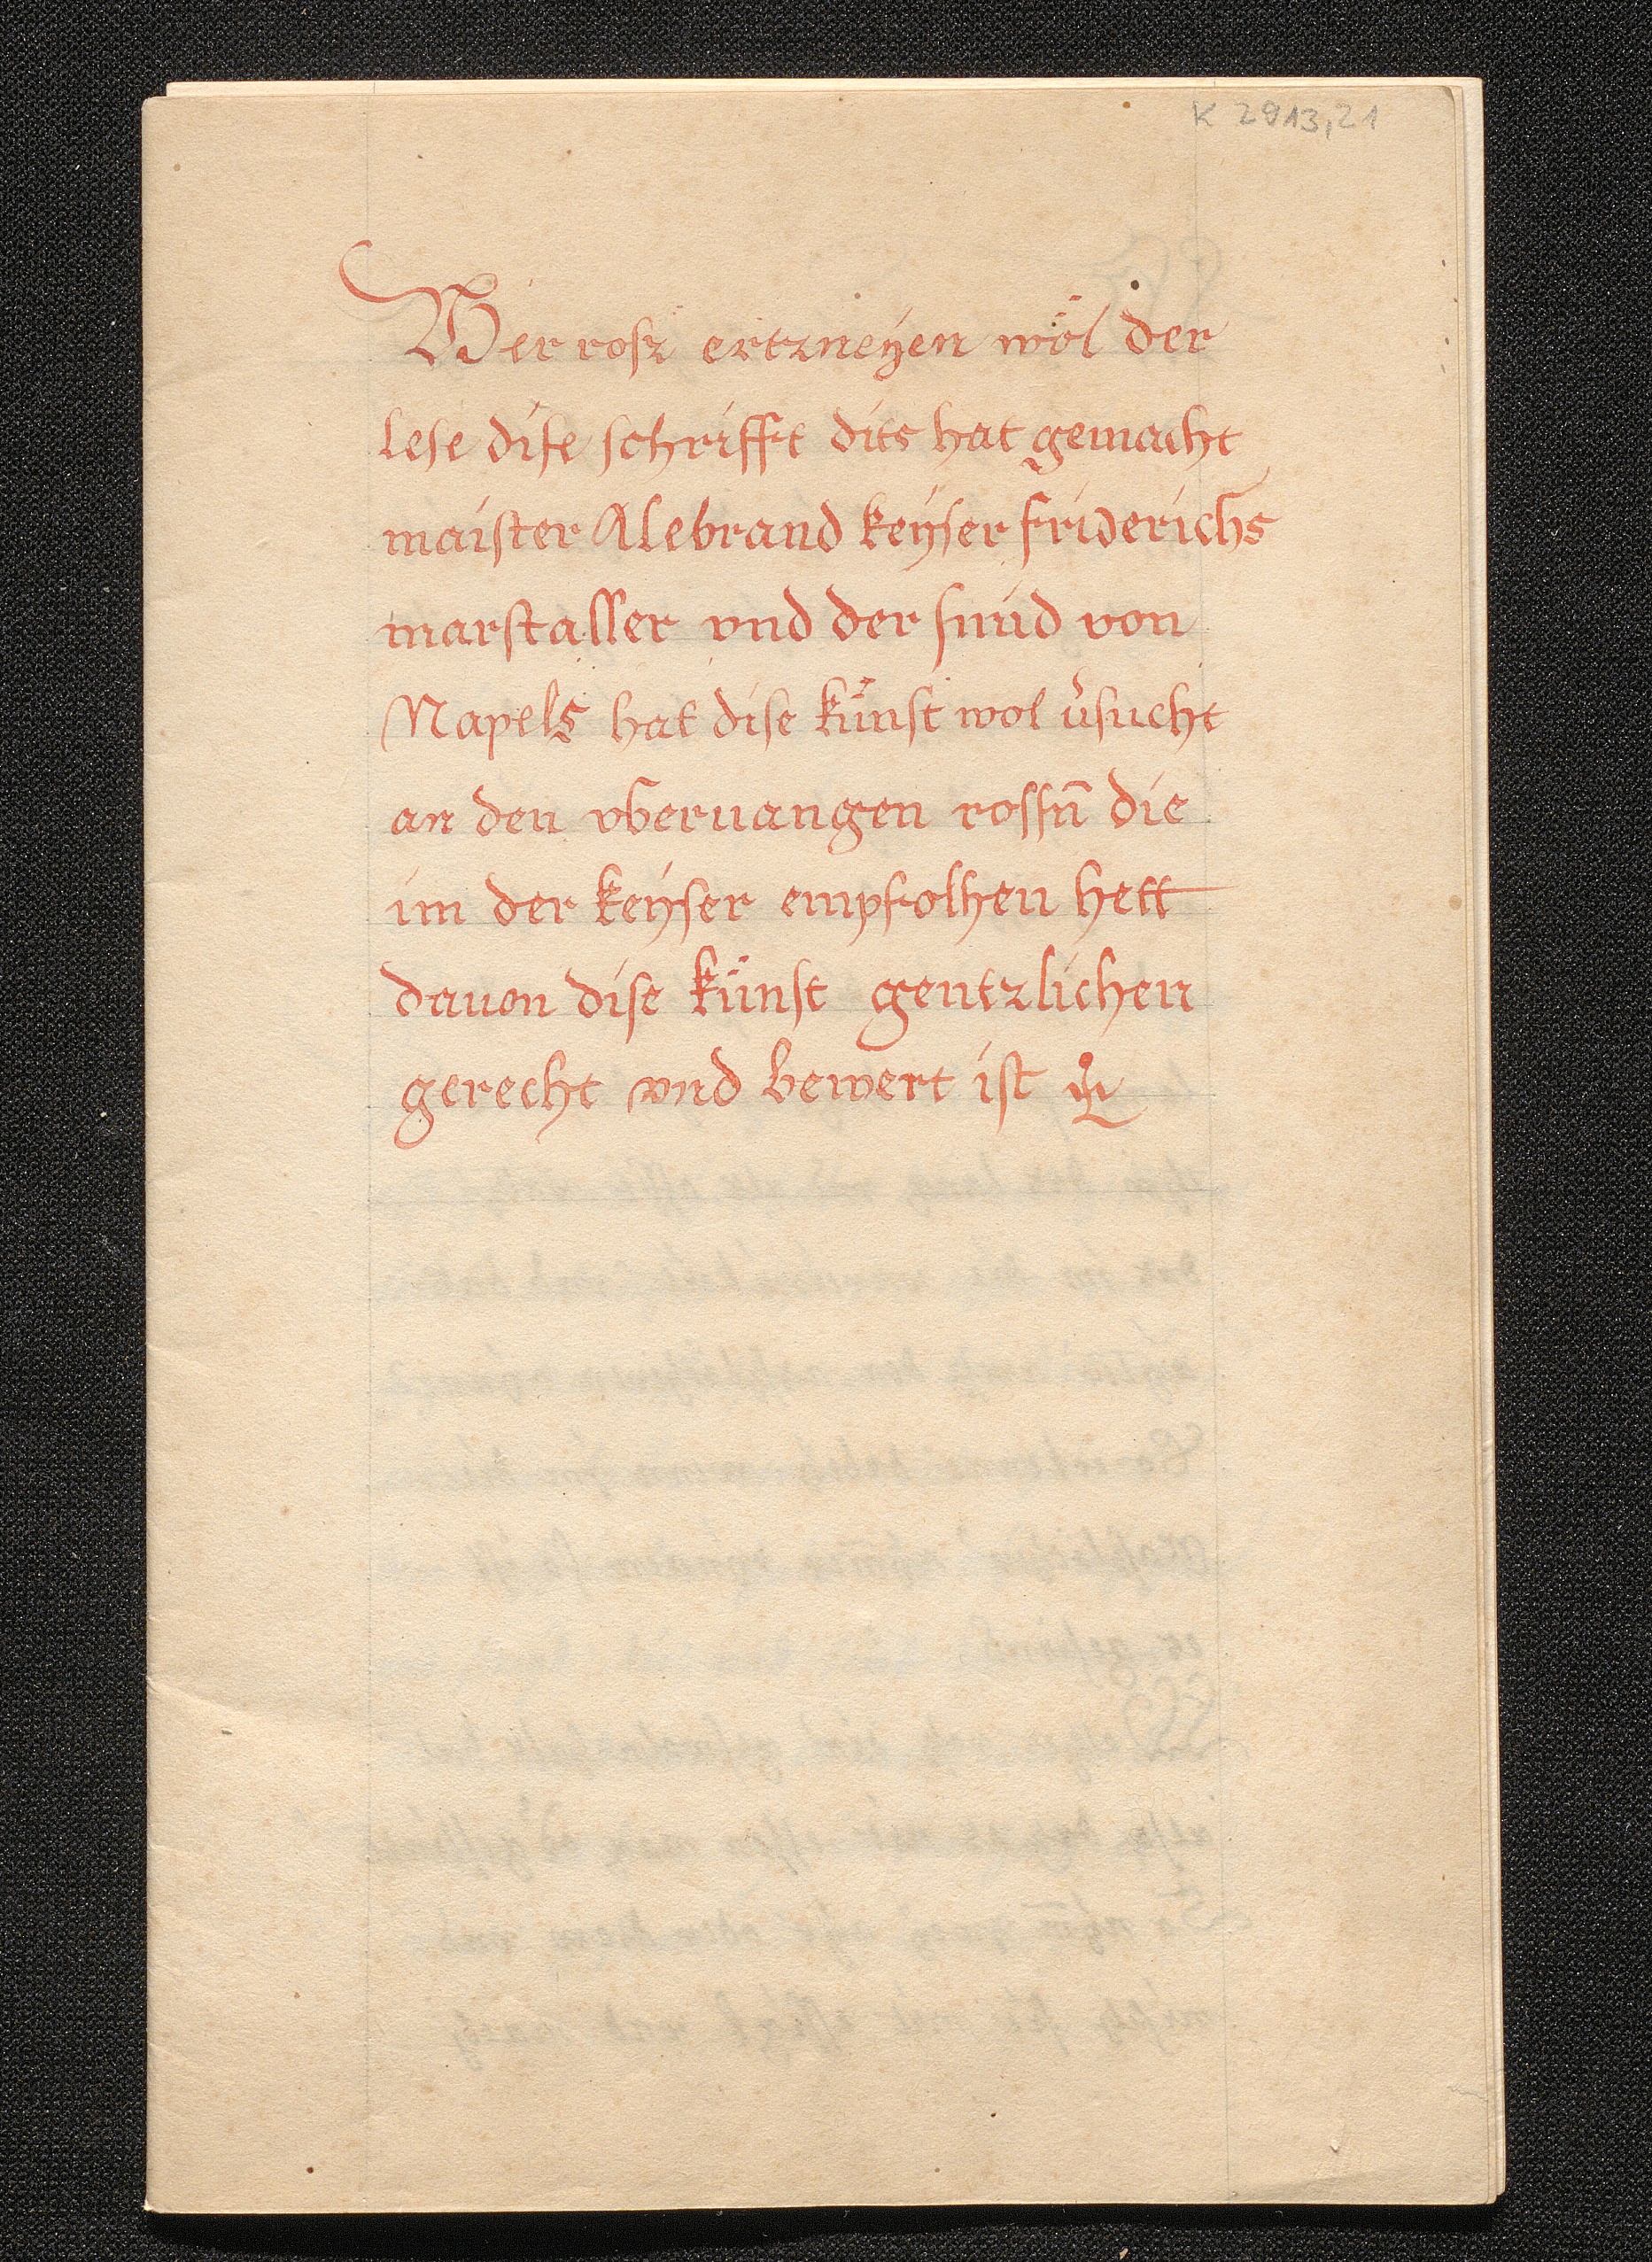 K 2913,21
Wer rosz ertzneÿen wöl der
lese dise schrifft dits hat gemacht
maister Alebrand keÿser friderichs
marstaller vnd der smid von
Napels hat dise künst wol v̓sucht
an den vberuangen rossn̄ die
im der keÿser empfolhen hett
dauon dise künst gentzlichen
gerecht vnd bewert ist